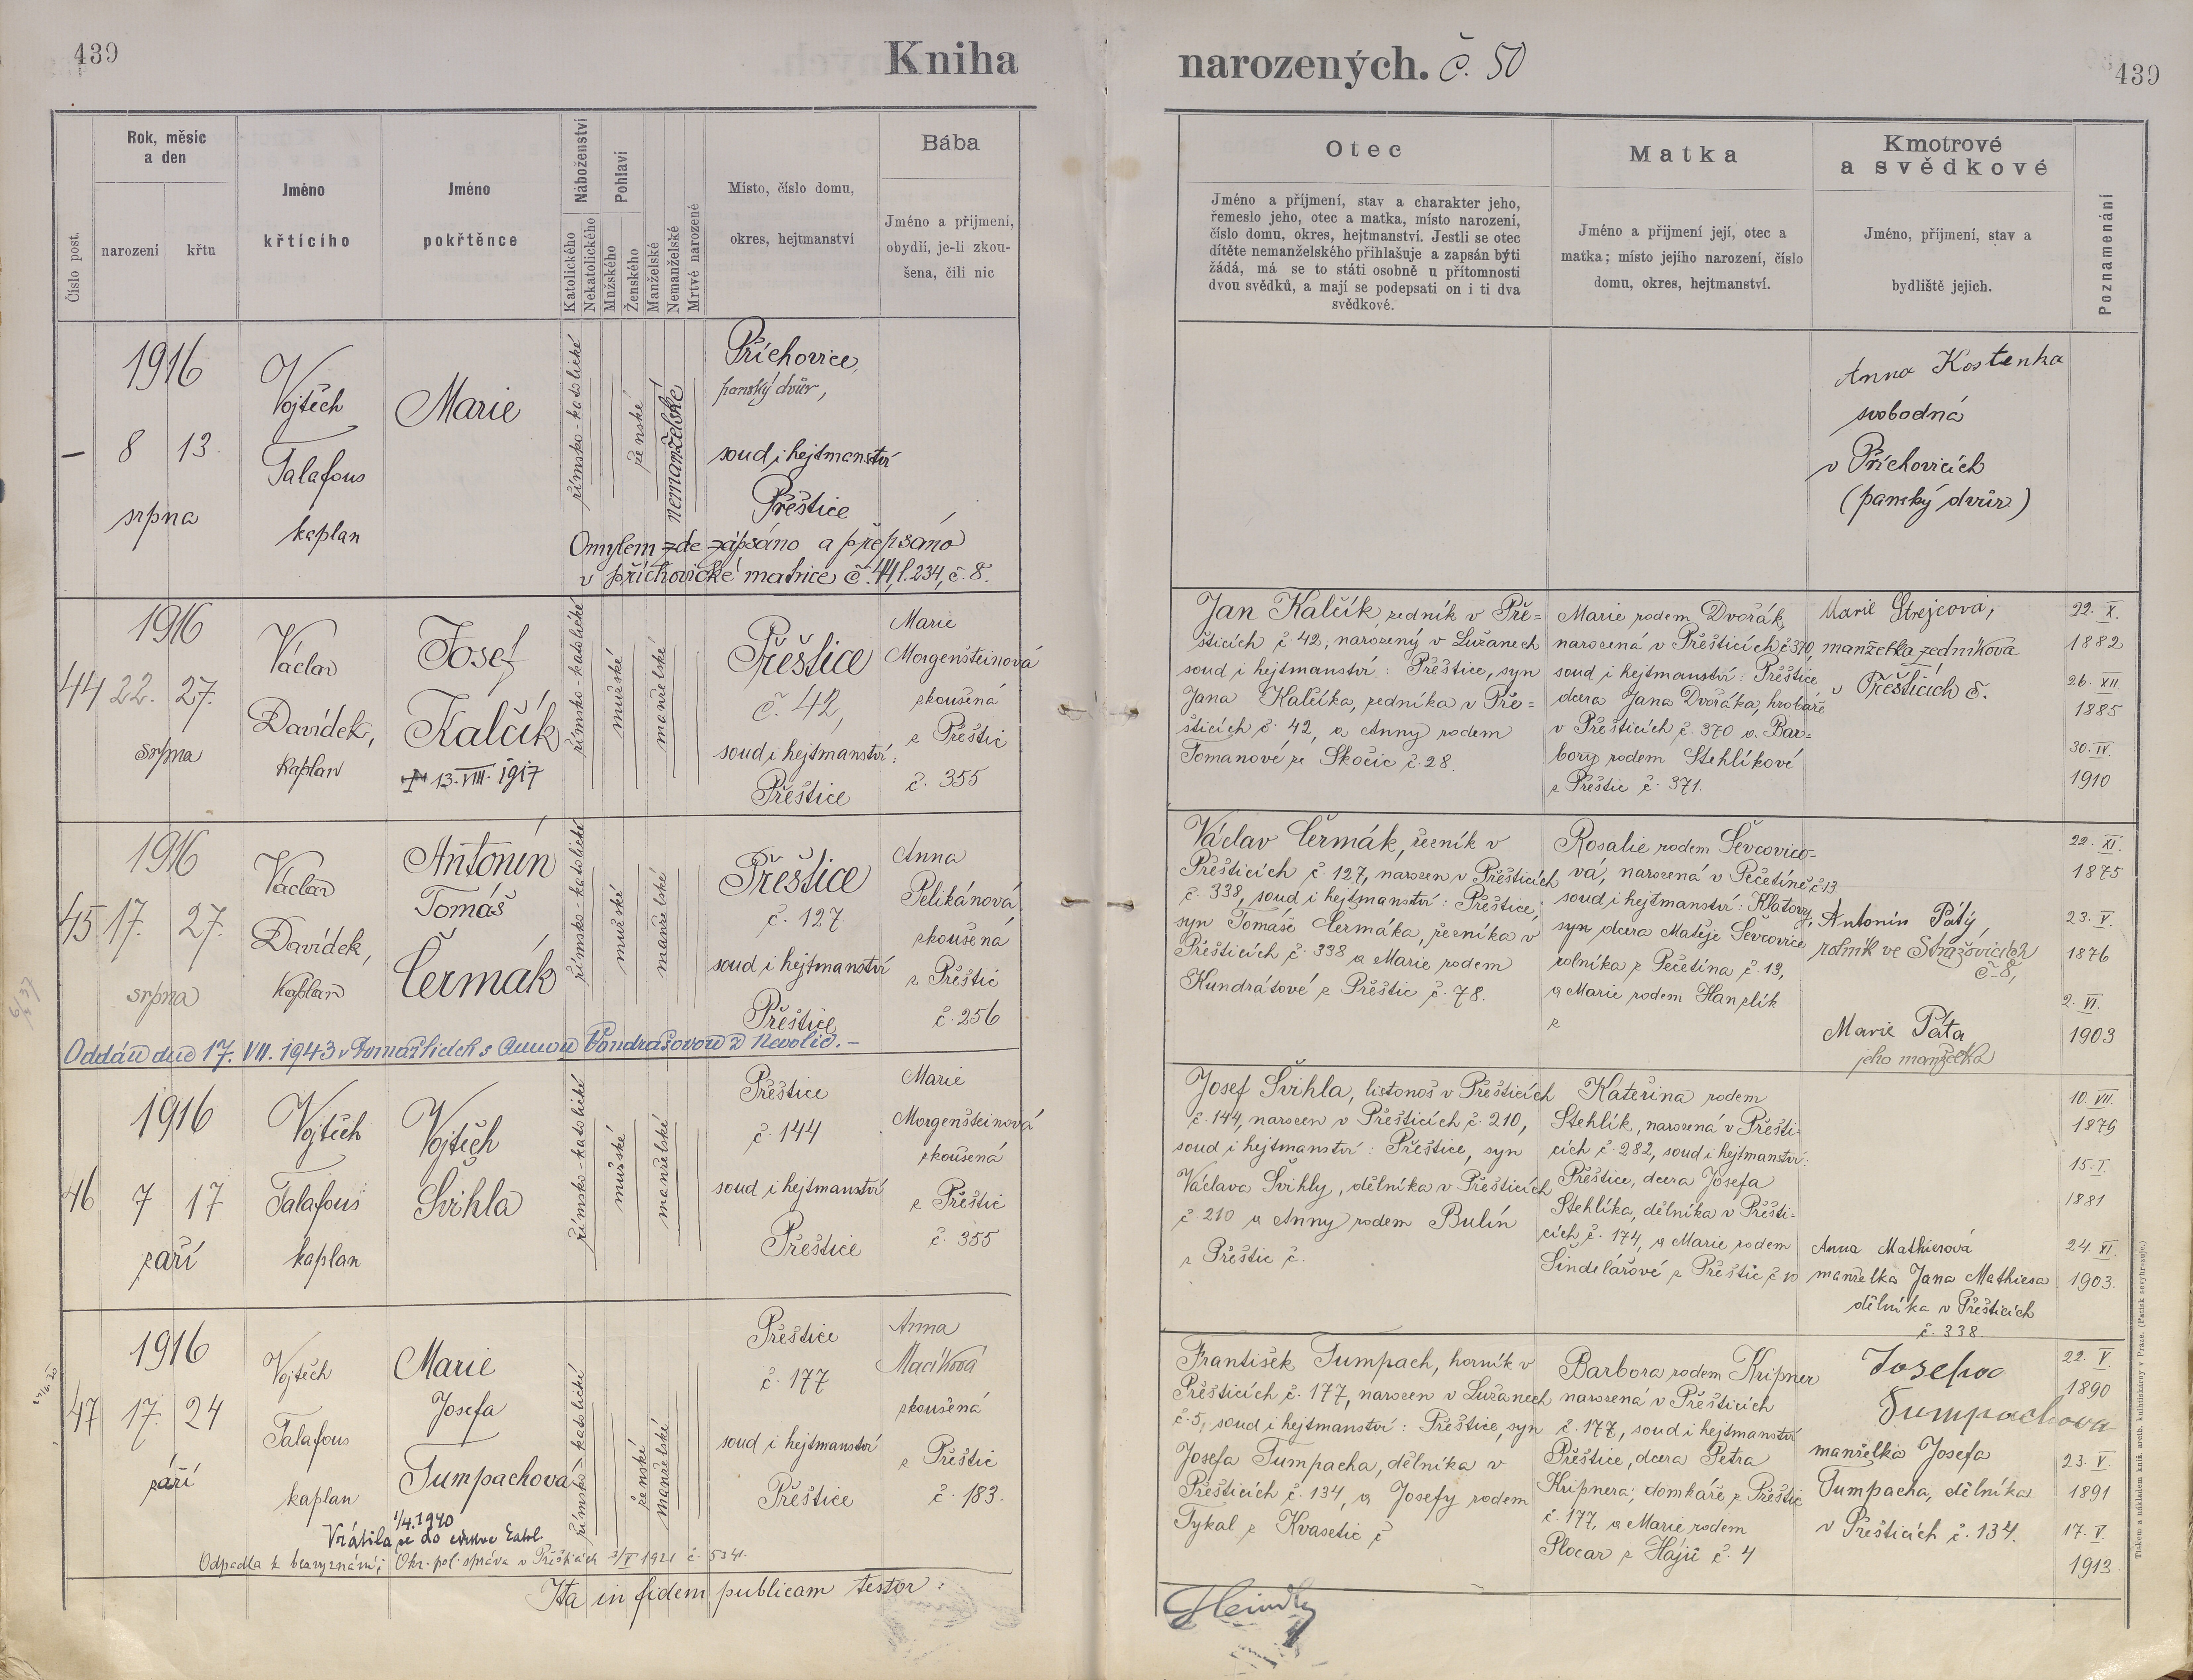 439
Kniha
narozených. č. 50
439
Číslo post.
Rok, měsíc
a den
narození
křtu
Jméno
křtícího
Jméno
pokřtěnce
Náboženství
Katolického
Nekatolického
Pohlaví
Mužského
Ženského
Manželské
Nemanželské
Mrtvě narozené
Místo, číslo domu,
okres, hejtmanství
Bába
Jméno a příjmení,
obydlí, je-li zkou-
šena, čili nic
Otec
Jméno a příjmení, stav a charakter jeho,
řemeslo jeho, otec a matka, místo narození,
číslo domu, okres, hejtmanství. Jestli se otec
dítěte nemanželského přihlašuje a zapsán býti
žádá, má se to státi osobně u přítomnosti
dvou svědků, a mají se podepsati on i ti dva
svědkové.
Matka
Jméno a příjmení její, otec a
matka; místo jejího narození, číslo
domu, okres, hejtmanství.
Kmotrové
a svědkové
Jméno, příjmení, stav a
bydliště jejich.
Poznamenání
1916
– 8 13.
srpna
Vojtěch
Talafous
kaplan
Marie
římsko-katolické
ženské
nemanželské
Příchovice,
panský dvůr,
soud i hejtmanství
Přeštice
Omylem zde zápsáno a přepsáno
v příchovické matrice č. 44, l. 234, č. 8.
Anna Kostenka
svobodná
v Příchovicích
(panský dvůr)
1916
44 22. 27.
srpna
Václav
Davídek,
kaplan
Josef
Kalčík
13. VIII. 1917
římsko-katolické
mužské
manželské
Přeštice
č. 42,
soud i hejtmanství:
Přeštice
Marie
Morgensteinová
zkoušená
z Přeštic
č. 355
Jan Kalčík, zedník v Pře=
šticích č. 42, narozený v Lužanech
soud i hejtmanství: Přeštice, syn
Jana Kalčíka, zedníka v Pře=
šticích č. 42, a Anny rodem
Tomanové ze Skočic č. 28.
Marie rodem Dvořák,
narozená v Přešticích č. 370,
soud i hejtmanství: Přeštice
dcera Jana Dvořáka, hrobaře
v Přešticích č. 370 a Bar=
bory rodem Stehlíkové
z Přeštic č. 371.
Marie Strejcová,
manželka zedníkova
v Přešticích č.
22. X.
1882
26. XII.
1885
30. IV.
1910
1916
45 17. 27.
srpna
Václav
Davídek,
kaplan
Antonín
Tomáš
Čermák
římsko-katolické
mužské
manželské
Přeštice
č. 127.
soud i hejtmanství
Přeštice
Anna
Pelikánová
zkoušená
z Přeštic
č. 256
Oddán dne 17. VII. 1943 v Domažlicích s Annou Vondrašovou z Nevolic. –
Václav Čermák, řezník v
Přešticích č. 127, narozen v Přešticích
č. 338, soud i hejtmanství: Přeštice;
syn Tomáše Čermáka, řezníka v
Přešticích č. 338 a Marie rodem
Kundrátové z Přeštic č. 78.
Rosalie rodem Ševcovico=
vá, narozená v Pečetíně č. 13.
soud i hejtmanství: Klatovy,
syn dcera Matěje Ševcovice
rolníka z Pečetína č. 13,
a Marie rodem Hanzlík
z
Antonín Pátý,
rolník ve Stražovicích
č. 8,
Marie Páta
jeho manželka
22. XI.
1875
23. V.
1876
2. VI.
1903
1916
46 7 17
září
Vojtěch
Talafous
kaplan
Vojtěch
Švihla
římsko-katolické
mužské
manželské
Přeštice
č. 144
soud i hejtmanství
Přeštice
Marie
Morgensteinová
zkoušená
z Přeštic
č. 355
Josef Švihla, listonoš v Přešticích
č. 144, narozen v Přešticích č. 210,
soud i hejtmanství: Přeštice, syn
Václava Švihly, dělníka v Přešticích
č. 210 a Anny rodem Bulín
z Přeštic č.
Kateřina rodem
Stehlík, narozená v Přešti=
cích č. 282, soud i hejtmanství:
Přeštice, dcera Josefa
Stehlíka, dělníka v Přešti=
cích č. 174, a Marie rodem
Šindelářové z Přeštic č. 10
Anna Mathierová
manželka Jana Mathiesa
dělníka v Přešticích
č. 338.
10. VII.
1879
15. I.
1881
24. XI.
1903.
1916
47 17. 24
září
Vojtěch
Talafous
kaplan
Marie
Josefa
Tumpachová
římsko-katolické
ženské
manželské
Přeštice
č. 177
soud i hejtmanství
Přeštice
Anna
Macíková
zkoušená
z Přeštic
č. 183.
1/4. 1940
Vrátila se do církve katol.
Odpadla k bezvyznání; Okr. pol. správa v Přešticích 3/V 1921 č. 5341.
František Tumpach, horník v
Přešticích č. 177, narozen v Lužanech
č. 5, soud i hejtmanství: Přeštice, syn
Josefa Tumpacha, dělníka v
Přešticích č. 134, a Josefy rodem
Tykal z Kvasetic č
Barbora rodem Kripner
narozená v Přešticích
č. 177, soud i hejtmanství
Přeštice, dcera Petra
Kripnera, domkáře z Přeštic
č. 177, a Marie rodem
Plocar z Hájů č. 4
Josefa
Tumpachova
manželka Josefa
Tumpacha, dělníka
v Přešticích č. 134.
22. V.
1890
23. V.
1891
17. V.
1913.
Ita in fidem publicam testor:
Tiskem a nákladem kníž. arcib. knihtiskárny v Praze. (Patisk se vyhrazuje.)